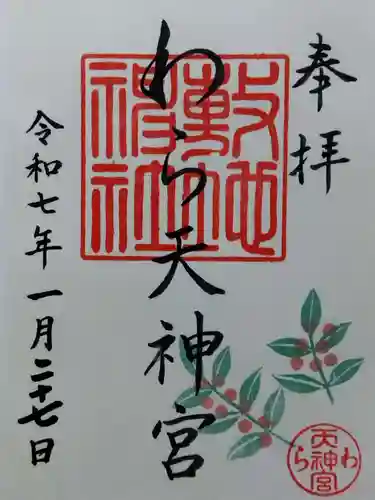 奉拝
わら天神宮
令和七年一月二十七日
敷地神社
わら天神宮